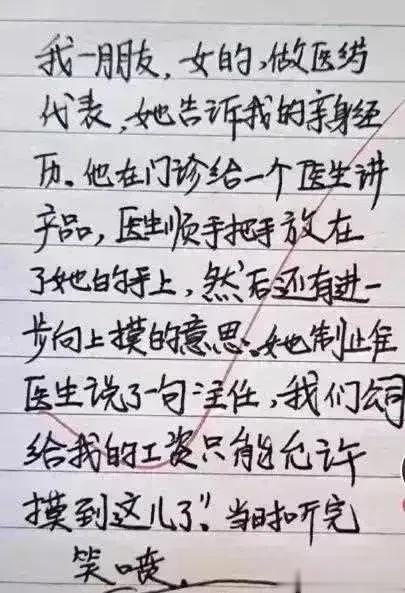 我一朋友,女的,做医药
代表,她告诉我的亲身经
历。他在门诊给一个医生讲
产品,医生顺手把手放在
了她的手上,然后还有进一
步向上摸的意思。她制止住
医生说了一句:"主任,我们公司
给我的工资只能允许
摸到这儿了"。当时听完
笑喷.